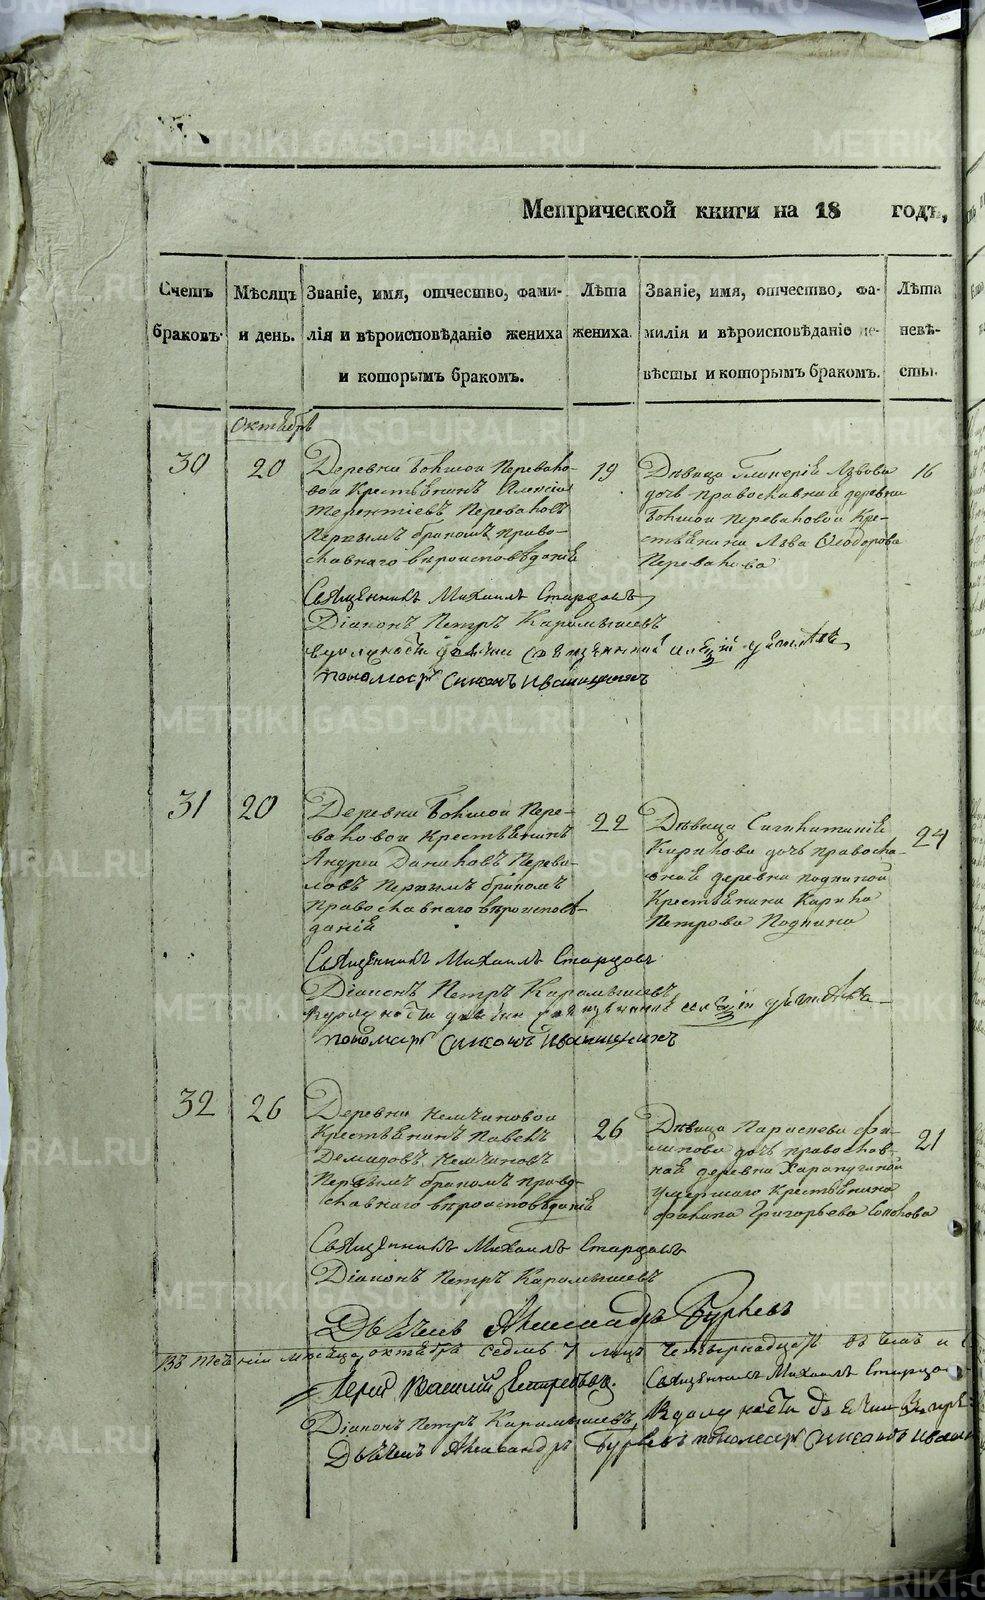 METRIKI.GASO-URAL.RU
Метрической книги на 18 годъ,
Счетъ браковъ.
Мѣсяцъ и день.
Званіе, имя, отчество, фами-
лія и вѣроисповѣданіе жениха
и которымъ бракомъ.
Лѣта
жениха.
Званіе, имя, отчество, фа-
милія и вѣроисповѣданіе не-
вѣсты и которымъ бракомъ.
Лѣта
невѣ-
сты.
Октябрь
30
20
Деревни Большой Перевало-
вой Крестьянинъ Алексій
Терентіевъ Переваловъ
Первымъ бракомъ право-
славнаго вѣроисповѣданія
19
Дѣвица Гликерія Львова
дочь православная деревни
Большой Переваловой Кре-
стьянина Льва Ѳеодорова
Перевалова
16
Священникъ Михаилъ Старцовъ
Діаконъ Петръ Карамышевъ
пономарь Симеонъ Иваницкихъ
31
20
Деревни Большой Пере-
валовой Крестьянинъ
Андрей Даниловъ Перева-
ловъ Первымъ бракомъ
Православнаго вѣроисповѣ-
данія
22
Дѣвица Сигклитикія
Кирилова дочь правосла-
вная деревни
Крестьянина Кирила
Петрова
24
Священникъ Михаилъ Старцовъ
Діаконъ Петръ Карамышевъ
пономарь Симеонъ Иваницкихъ
32
26
Деревни Кемчиновой
Крестьянинъ Павелъ
Демидовъ Кемчиновъ
Первымъ бракомъ право-
славнаго вѣроисповѣданія
26
Дѣвица Параскева Фи-
липова дочь православ-
ная деревни
умершаго Крестьянина
Филипа Григорьева
21
Священникъ Михаилъ Старцовъ
Діаконъ Петръ Карамышевъ
Дьячекъ Александръ Бурлевъ
Въ теченіи мѣсяца октября седмь 7 лицъ четырнадцать
Іерей Василий
Священникъ Михаилъ
Діаконъ Петръ Карамышевъ, В должности
Дьячекъ Александръ Бурлевъ пономарь Симеонъ